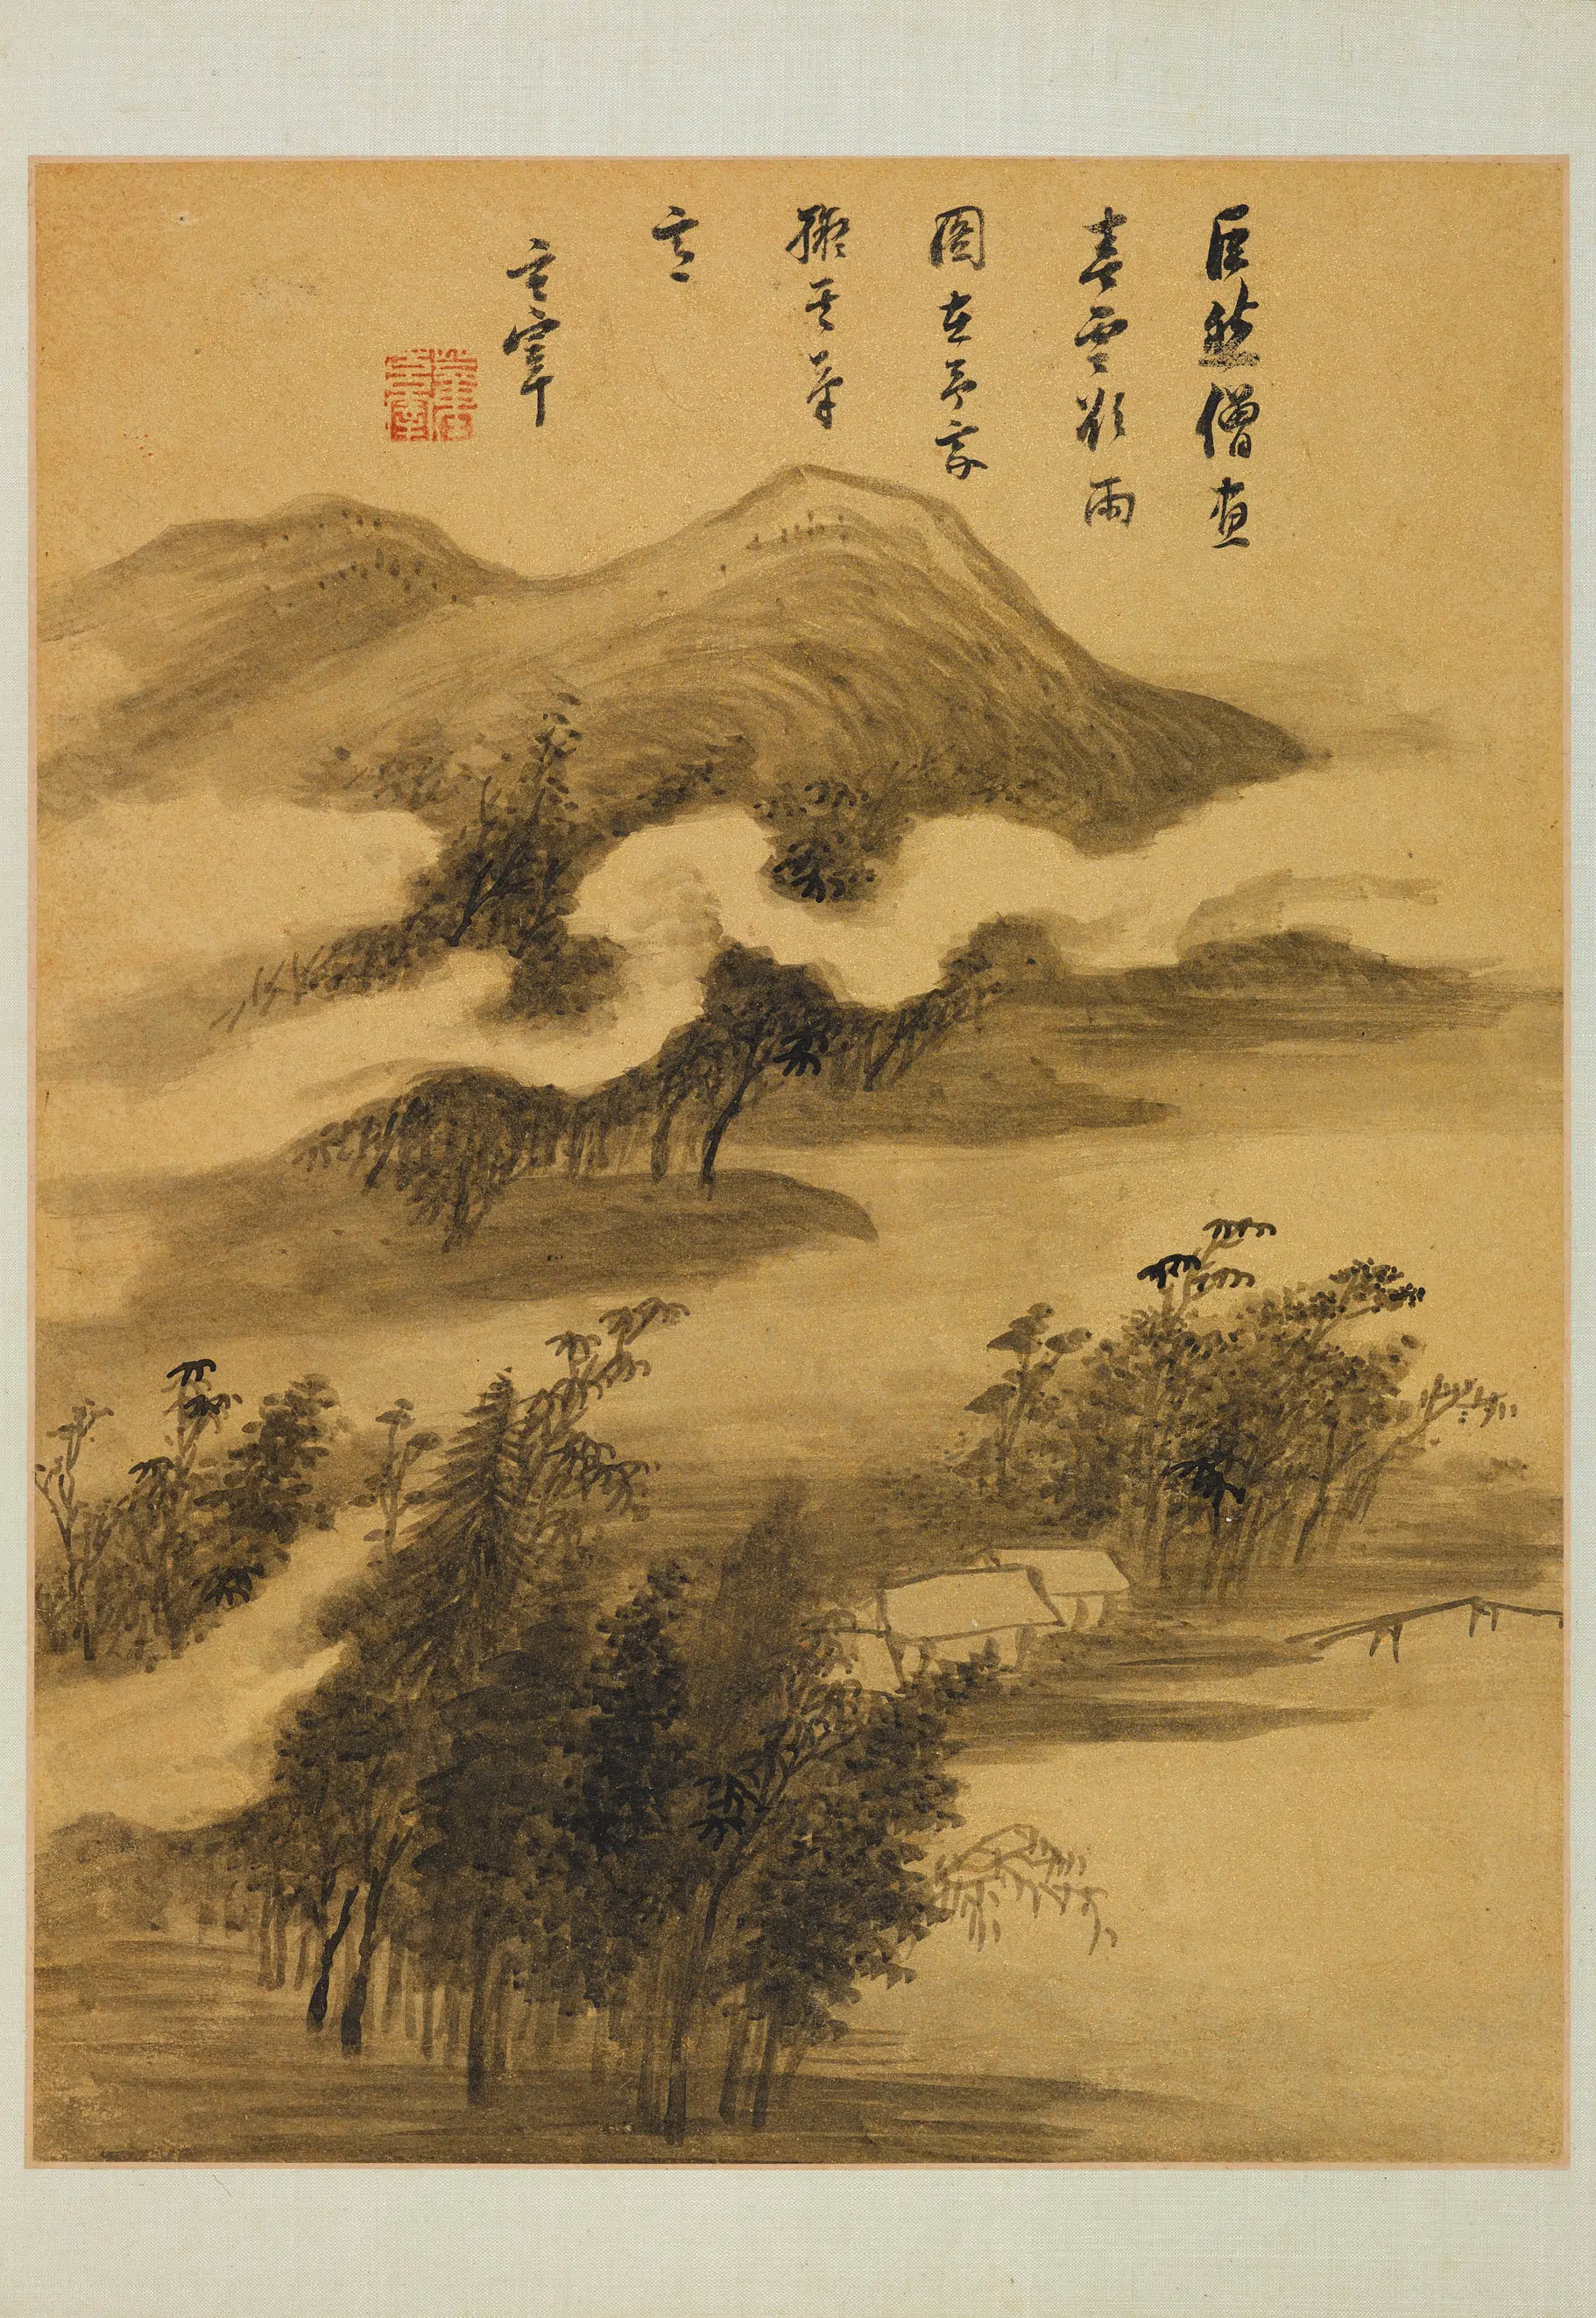 巨然僧畫
春雲欲雨
圖在予家
擬其筆
意
玄宰